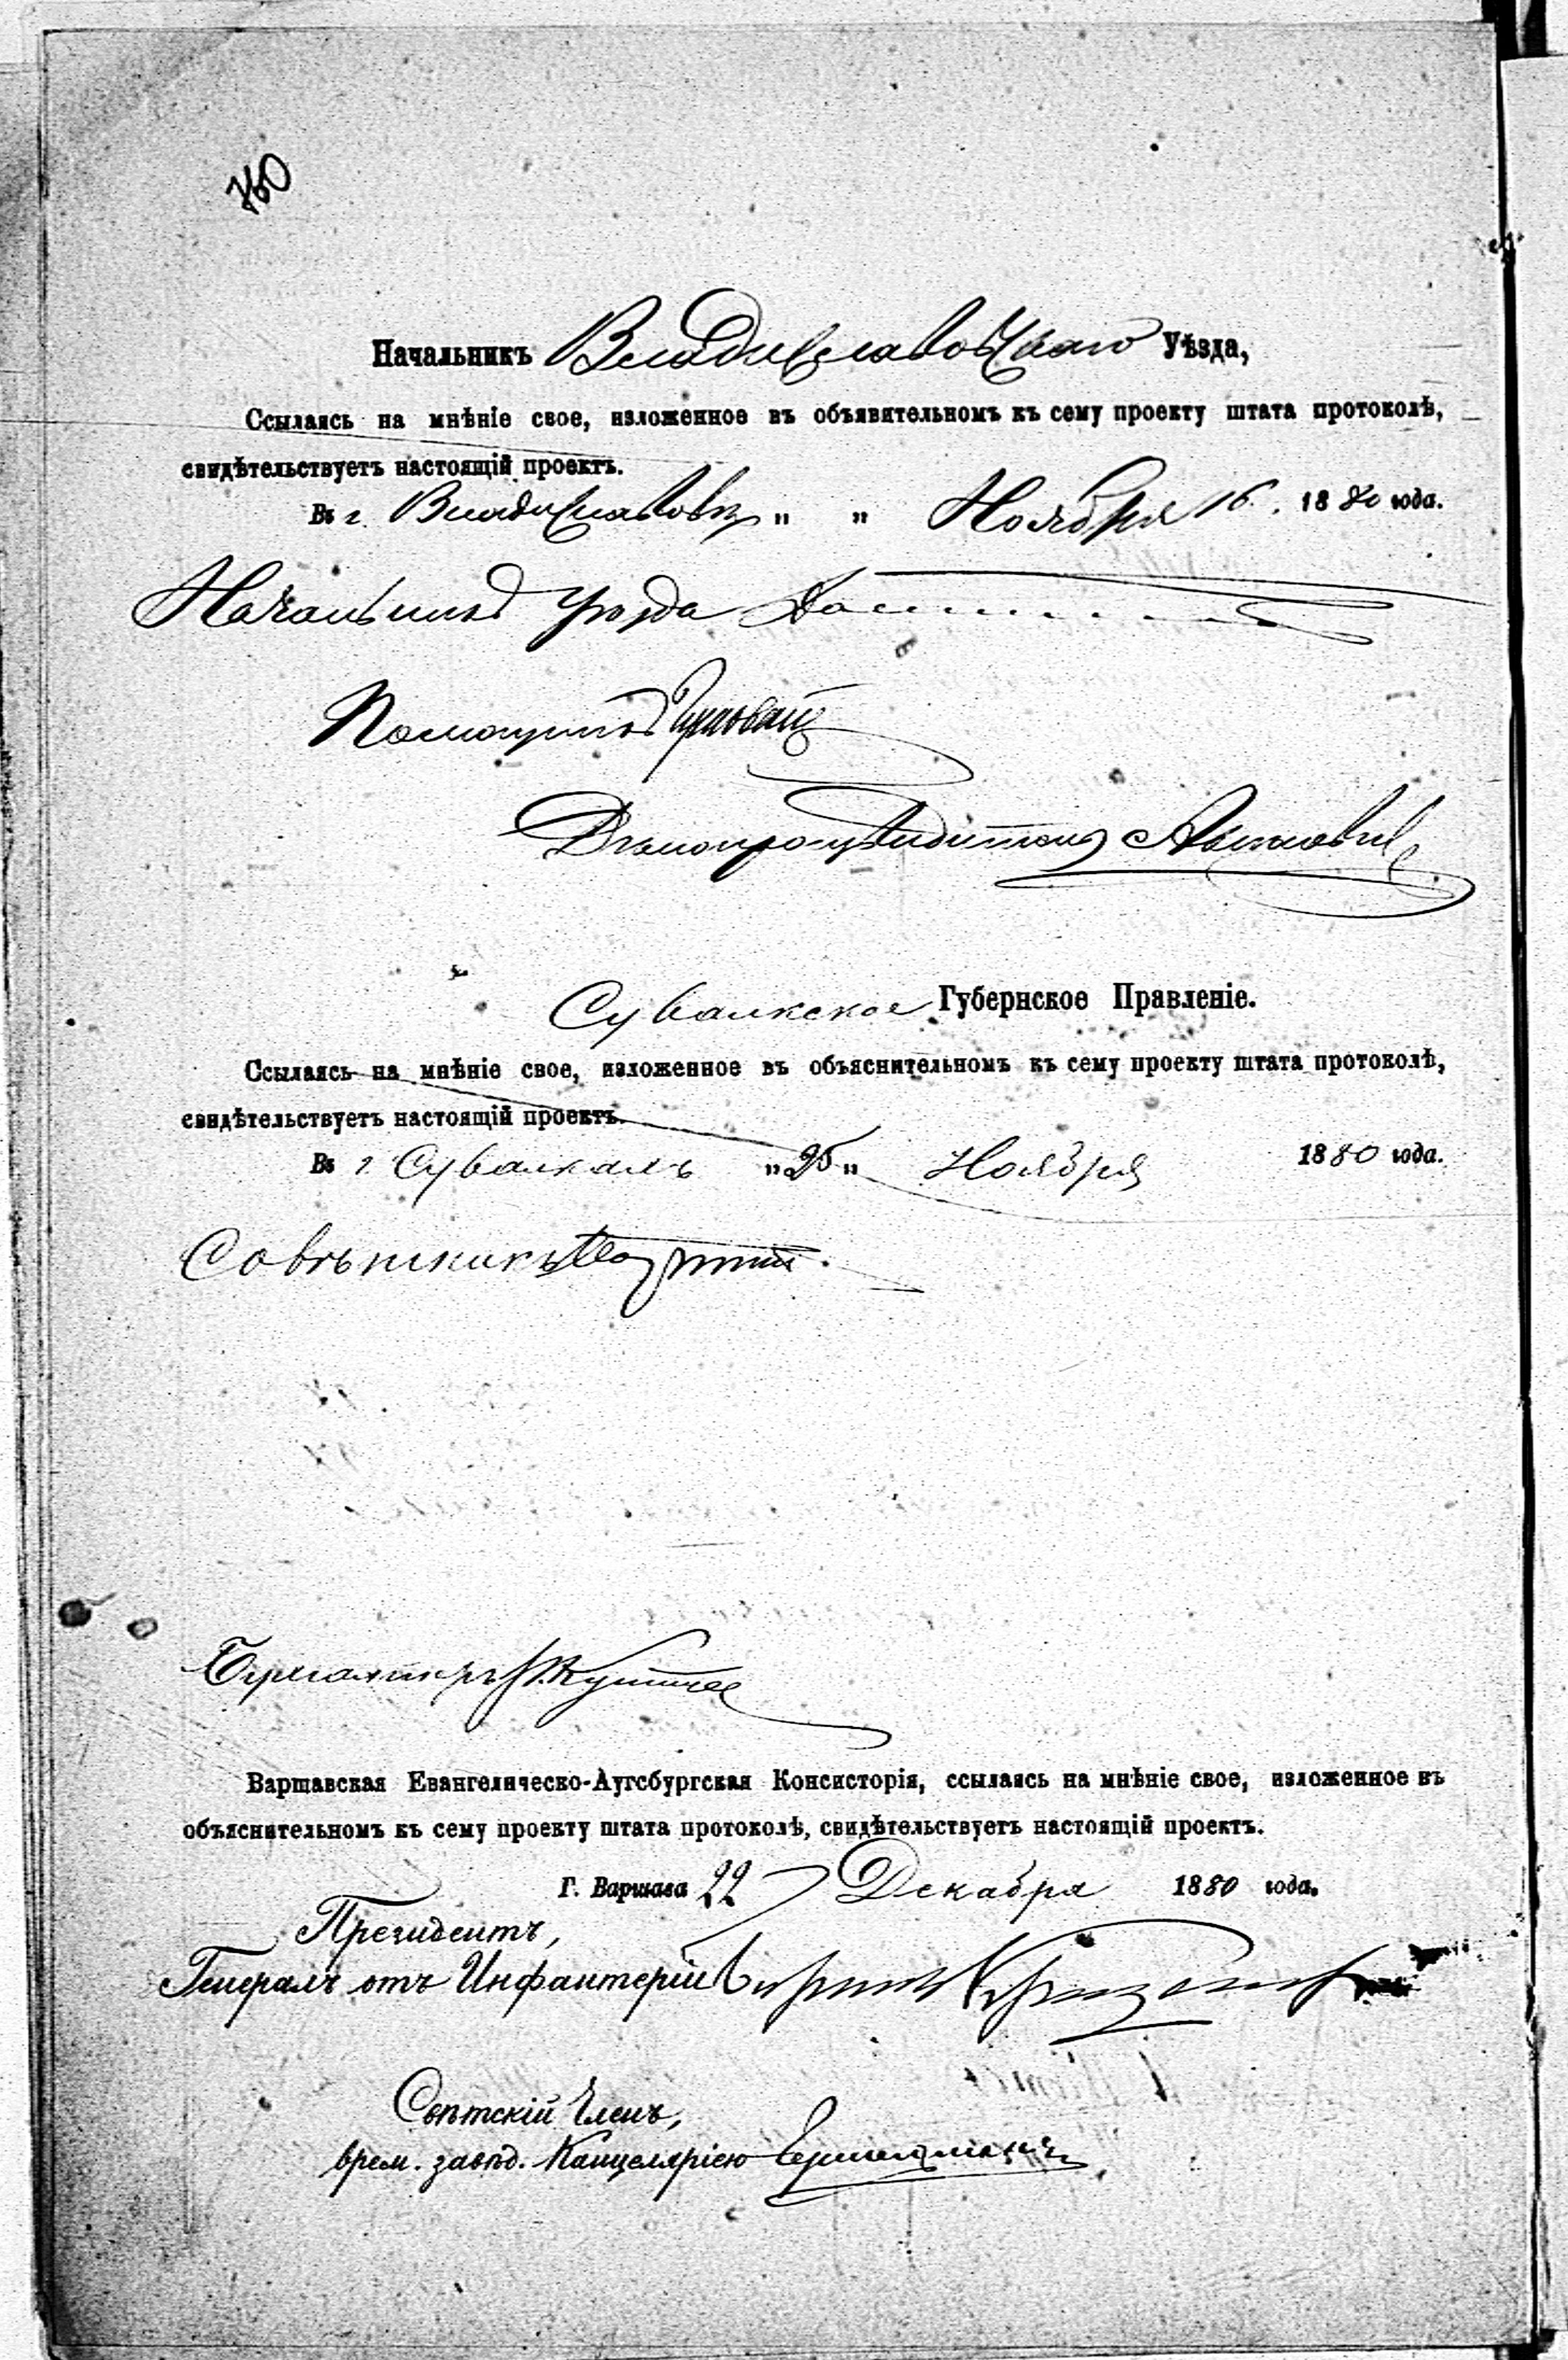 760
Начальникъ Владиславовскаго Уѣзда,
Ссылаясь на мнѣніе свое, изложенное въ объявительномъ къ сему проекту штата протоколѣ,
свидѣтельствуетъ настоящій проектъ.
Въ г. Владиславовѣ „ „ Ноября 16. 1880 года.
Начальникъ Уѣзда
Помощникъ
Дѣлопроизводитель
Сувалкское Губернское Правленіе.
Ссылаясь на мнѣніе свое, изложенное въ объяснительномъ къ сему проекту штата протоколѣ,
свидѣтельствуетъ настоящій проектъ.
Въ г Сувалкахъ „25„ Ноября 1880 года.
Совѣтникъ
Бухгалтеръ
Варшавская Евангелическо-Аугсбургская Консисторія, ссылаясь на мнѣніе свое, изложенное въ
объяснительномъ къ сему проекту штата протоколѣ, свидѣтельствуетъ настоящій проектъ.
Г. Варшава 22 Декабря 1880 года.
Президентъ,
Генералъ отъ Инфантеріи
Свѣтскій Членъ,
врем. завѣд. Канцеляріею